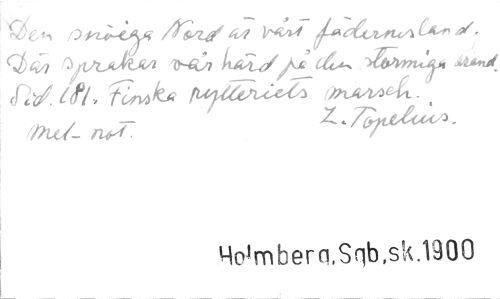 Den snöiga Nord är vårt fädernesland.
Där sprakar vår härd på den stormiga strand.
Sid. 181. Finska rytteriets marsch.
Z. Topelius.
Mel-not.
Holmberg,Sgb,sk.1900